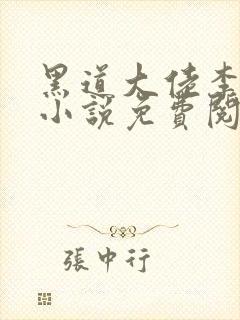 黑道大佬李
小說免費閱
張中行